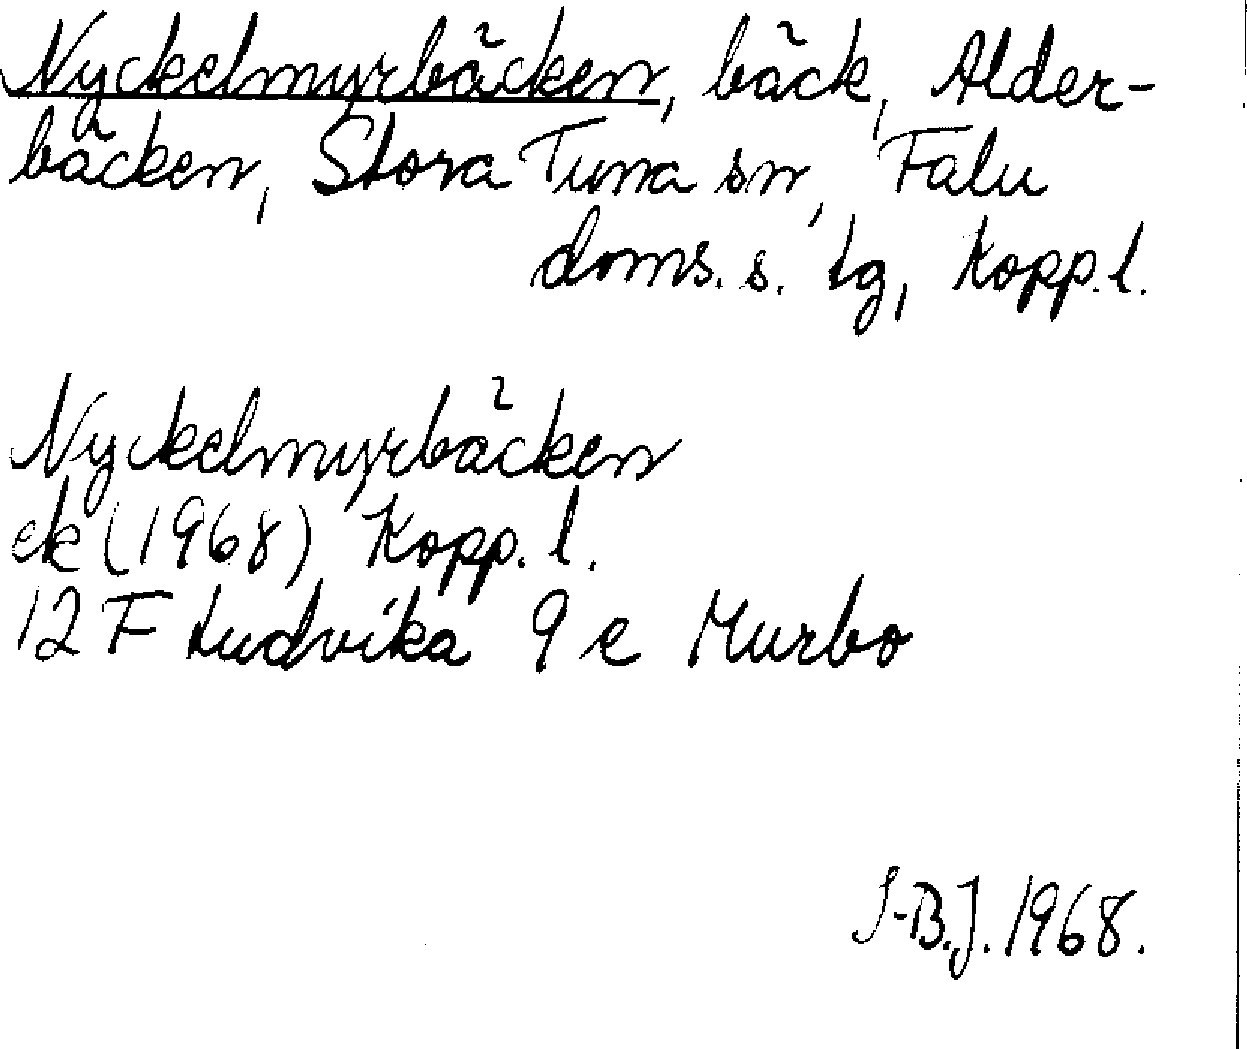 Nyckelmyrbäcken, bäck, Alder-
bäcken, Stora Tuna sn, Falu
doms. s. tg, Kopp. l.
Nyckelmyrbäcken
ek (1968) Kopp. l.
12 F Ludvika 9 e Murbo
I-B.J. 1968.